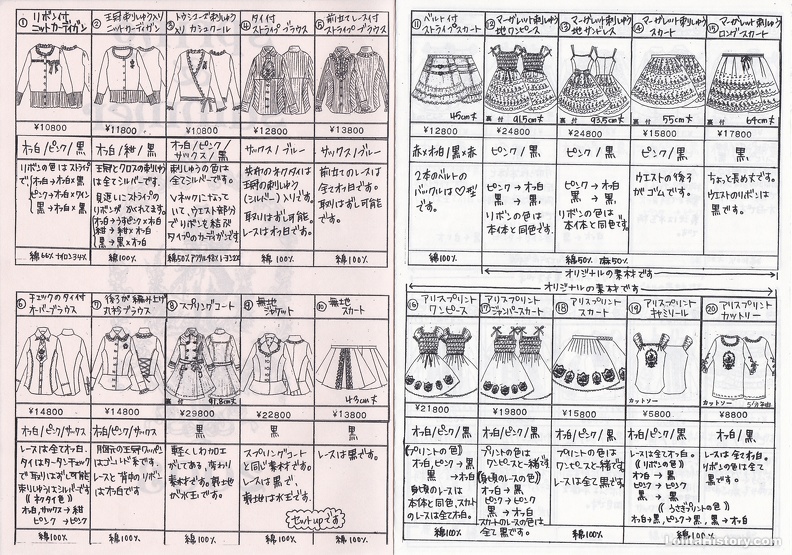 ① リボン付
ニットカーディガン
¥10800
オフ白/ピンク/黒
リボンの色はストライプで
オフ白→オフ白×黒
ピンク→オフ白×ワイン
黒→オフ白×黒
です。
綿66% ナイロン34%
② 王冠刺しゅう入り
ニットカーディガン
¥11800
オフ白/紺/黒
王冠とクロスの刺しゅう
は全てシルバーです。
見返しにストライプの
リボンがかくれてます。
綿100%
③
入り カシュクール
¥10800
オフ白/ピンク/
サックス/黒
刺しゅうの色は
全てシルバーです。
Vネックになって
いて、ウエスト部分
でリボンを結ぶ
タイプのカーディガンです
④ タイ付
ストライプブラウス
¥12800
サックス/ブルー
共布のネクタイは
王冠の刺しゅう
(シルバー)入りです。
取りはずし可能。
レースはオフ白です。
綿100%
⑤ 前立てレース付
ストライプブラウス
¥13800
サックス/ブルー
前立てのレースは
全てオフ白です。
取りはずし可能
です。
綿100%
⑥ チェックのタイ付
オーバーブラウス
¥14800
オフ白/ピンク/サックス
レースは全てオフ白。
タイはタータンチェック
で取りはずし可能
刺しゅうはシルバーです
(ネクタイ色)
オフ白,サックス→紺
ピンク→ピンク
綿100%
⑦ 後ろが編み上げ
丸衿ブラウス
¥14800
オフ白/ピンク/サックス
レースと背中のリボン
はオフ白です
綿100%
⑧ スプリングコート
裏付 91.8cm丈
¥29800
黒
軽くしわ加工
がしてある、変わり
素材です。
が水玉です。
綿100%
⑨ 無地
ジャケット
¥22800
黒
スプリングコート
と同じ素材です。
レースは黒で、
水玉です。
セットupです
綿100%
⑩ 無地
スカート
43cm丈
¥13800
黒
レースは黒です。
綿100%
⑪ ベルト付
ストライプスカート
45cm丈
¥12800
赤×オフ白/黒×赤
2本のベルトの
バックルは♡型
です。
綿100%
⑫ マーガレット刺しゅう
地ワンピース
裏付 91.5cm丈
¥24800
ピンク/黒
ピンク→オフ白
黒→黒
リボンの色は
本体と同色です。
⑬ マーガレット刺しゅう
地サンドレス
裏付 93.5cm丈
¥24800
ピンク/黒
ピンク→オフ白
黒→黒
リボンの色は
本体と同色です
⑭ マーガレット刺しゅう
スカート
裏付 55cm丈
¥15800
ピンク/黒
ウエストの後ろ
がゴムです。
⑮ マーガレット刺しゅう
ロングスカート
裏付 64cm丈
¥17800
ピンク/黒
ちょっと長め丈です。
ウエストのリボンは
黒です。
綿50% 麻50%
オリジナルの素材です
オリジナルの素材です
⑯ アリスプリント
ワンピース
¥21800
オフ白/ピンク/黒
(プリントの色)
オフ白,ピンク→黒
黒→オフ白
身頃のレースは
本体と同色、スカート
のレースは全てオフ白。
綿100%
⑰ アリスプリント
ジャンパースカート
¥19800
オフ白/ピンク/黒
プリントの色は
ワンピースと一緒です
(身頃のレースの色)
オフ白→黒
ピンク→ピンク
黒→オフ白
スカートのレースの色は
全て黒です。
⑱ アリスプリント
スカート
¥15800
オフ白/ピンク/黒
プリントの色は
ワンピースと一緒です
レースは全て黒です。
綿100%
⑲ アリスプリント
キャミソール
カットソー
¥5800
オフ白/ピンク/黒
レースは全てオフ白。
(リボンの色)
オフ白→黒
ピンク→ピンク
黒→黒
(うさぎプリントの色)
オフ白→黒,ピンク→黒,黒→オフ白
⑳ アリスプリント
カットソー
カットソー
¥8800
オフ白/黒
レースは全てオフ白、
リボンの色は全て
黒です。
綿100%
LolitaHistory.com